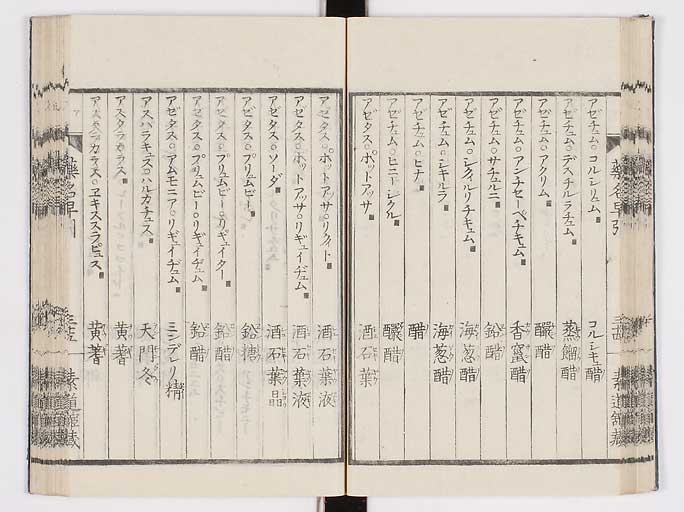 アゼチュム。コルシリュム。 コルシキュ醋
アゼチュム。デスチルラチュム。 蒸餾醋
アゼチュム。アクリム。 醲醋
アゼチュム。アンチセーペチキュム。 香竄醋
アゼチュム。サチュルニ。 鉛醋
アゼチュム。シクィルリチキュム。 海葱醋
アゼチュム。シキルラ。 海葱醋
アゼチュム。ヒナ。 醋
アゼチュム。ヒニーシクル。 醲醋
アゼタス。ポットアッサ。 酒石葉
アゼタス。ポットアッサ。リクィト。 酒石葉液
アゼタス。ポットアッサ。リギュイヂュム。 酒石葉液
アゼタス。ソーダ。 酒石葉晶
アゼタス。プリュムビー。 鉛糖
アゼタス。プリュムビー。リギュイター。 鉛醋
アゼタス。プリュムビー。リギュイヂュム。 鉛醋
アゼタス。アムモニア。リギュイヂュム。 ミンデレリ精
アスパラキュス。ハルカチュス。 天門冬
アスタラカラス。 黄蓍
アスタラカラス。ヱキススラピュス。 黄蓍
藥名早引